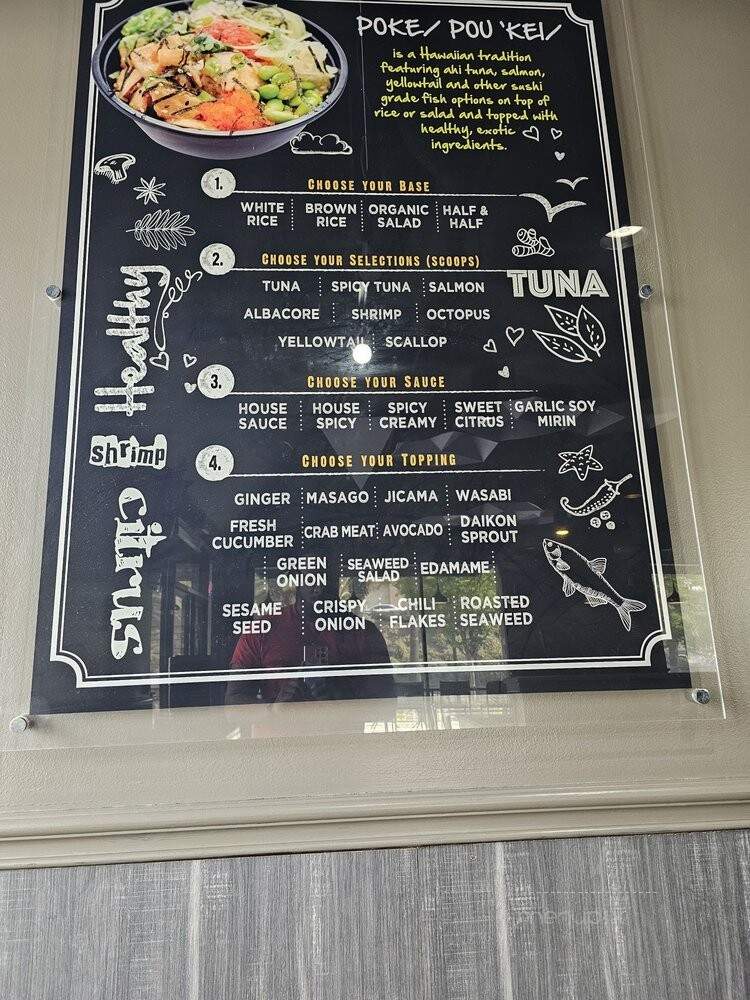 POKE/ POU 'KEI/
is a Hawaiian tradition
featuring ahi tuna, salmon,
yellowtail and other sushi
grade fish options on top of
rice or salad and topped with
healthy, exotic
ingredients.
1. CHOOSE YOUR BASE
WHITE RICE BROWN RICE ORGANIC SALAD HALF & HALF
2. CHOOSE YOUR SELECTIONS (SCOOPS)
TUNA SPICY TUNA SALMON
ALBACORE SHRIMP OCTOPUS
YELLOWTAIL SCALLOP
TUNA
Healthy
3. CHOOSE YOUR SAUCE
HOUSE SAUCE HOUSE SPICY SPICY CREAMY SWEET CITRUS GARLIC SOY MIRIN
shrimp
4. CHOOSE YOUR TOPPING
GINGER MASAGO JICAMA WASABI
FRESH CUCUMBER CRAB MEAT AVOCADO DAIKON SPROUT
GREEN ONION SEAWEED SALAD EDAMAME
SESAME SEED CRISPY ONION CHILI FLAKES ROASTED SEAWEED
citrus